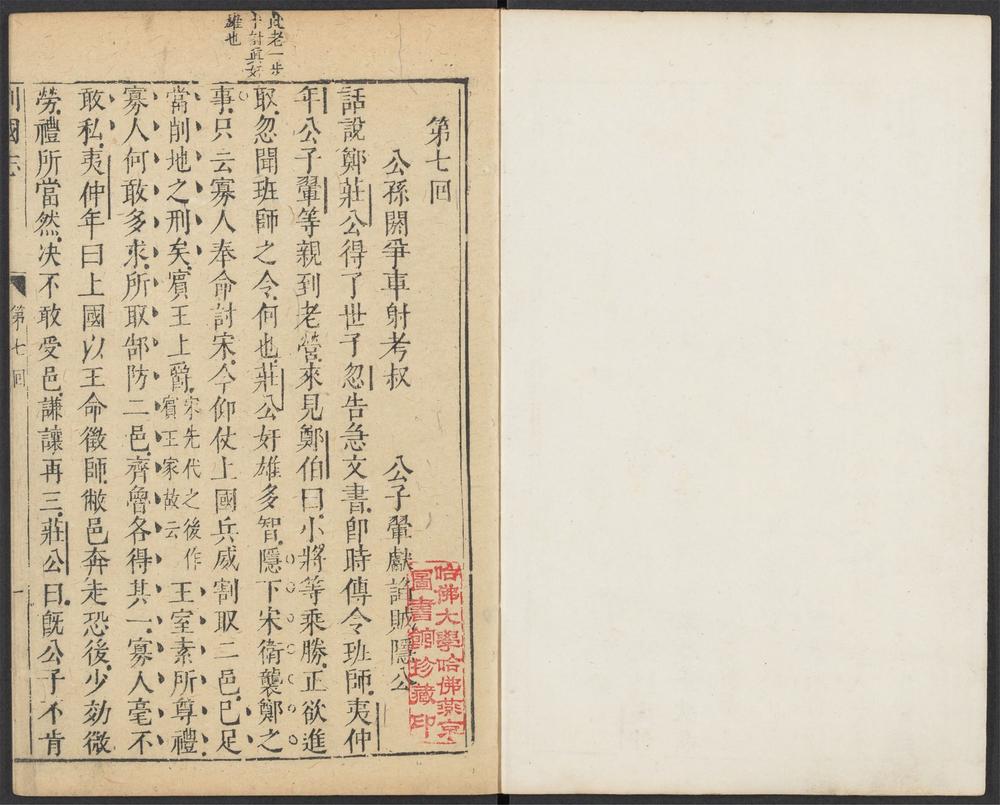 第七回
公孫閼爭車射考叔　公子翬獻諂賊隱公
話說鄭莊公得了世子忽告急文書.即時傳令班師.夷仲
年公子翬等親到老營.來見鄭伯曰.小將等乘勝.正欲進
取.忽聞班師之令.何也.莊公奸雄多智.隱下宋衛襲鄭之
事.只云寡人奉命討宋.今仰仗上國兵威.割取二邑.已足
當削地之刑矣.賓王上爵.宋先代之後作賓王家故云王室素所尊禮.
寡人何敢多求.所取郜防二邑.齊魯各得其一.寡人毫不
敢私.夷仲年曰.上國以王命徵師.敝邑奔走恐後.少効微
勞.禮所當然.决不敢受邑.謙讓再三.莊公曰.旣公子不肯
此老一步
十計眞奸
雄也
列國志
第七回
一
哈佛大學哈佛燕京
圖書館珍藏印